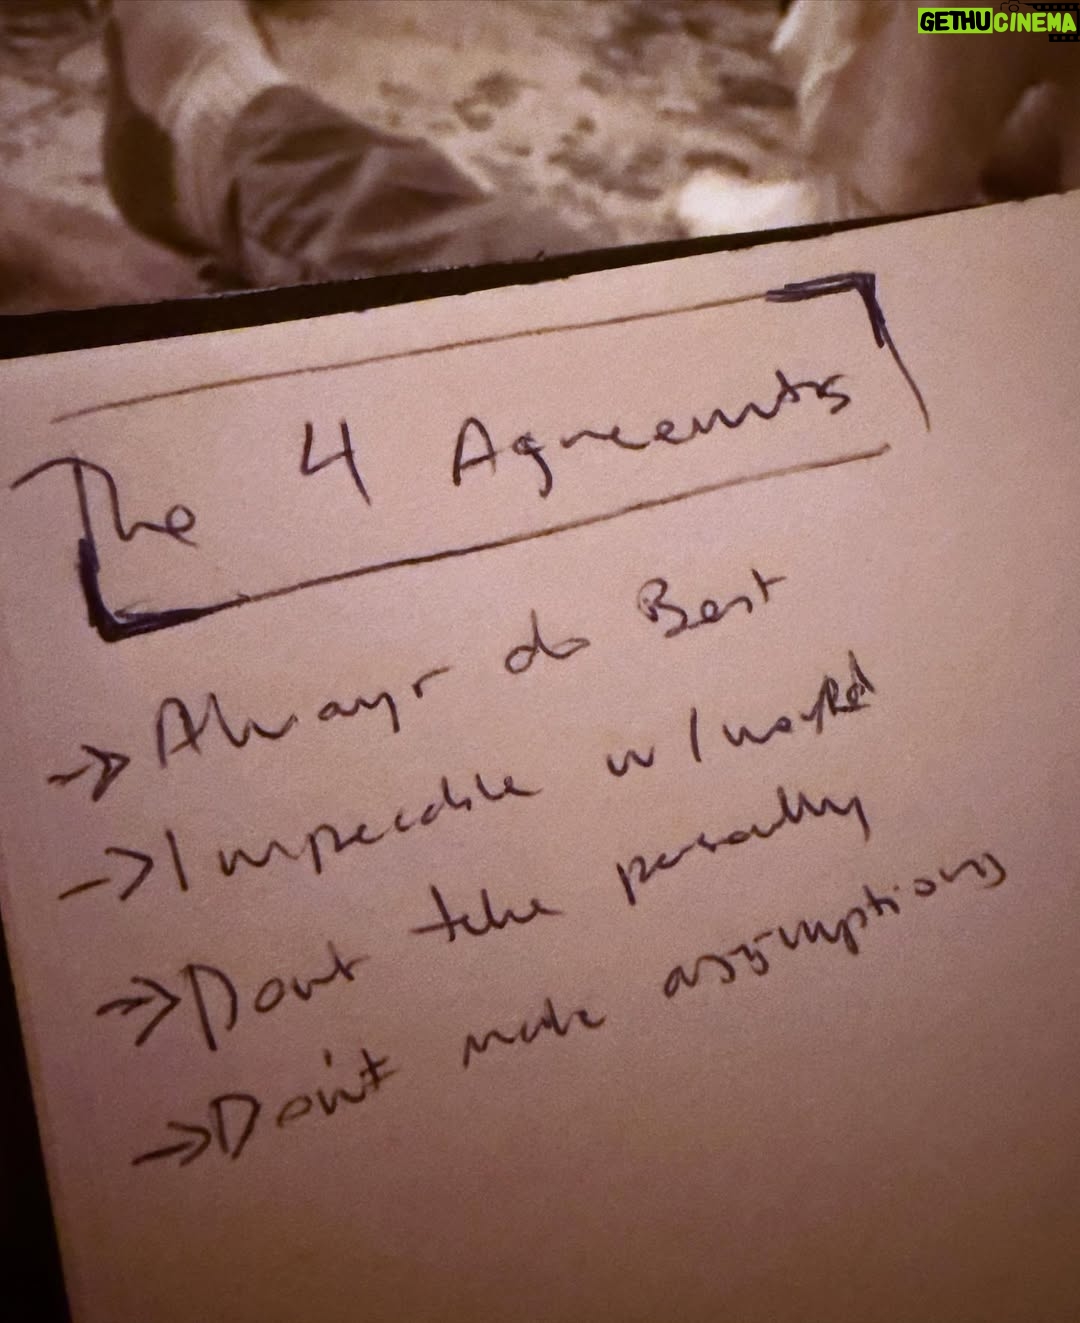 GETHUCINEMA
The 4 Agreements
→ Always do Best
→ Impeccable w/ word
→ Dont take personally
→ Don't make assumptions